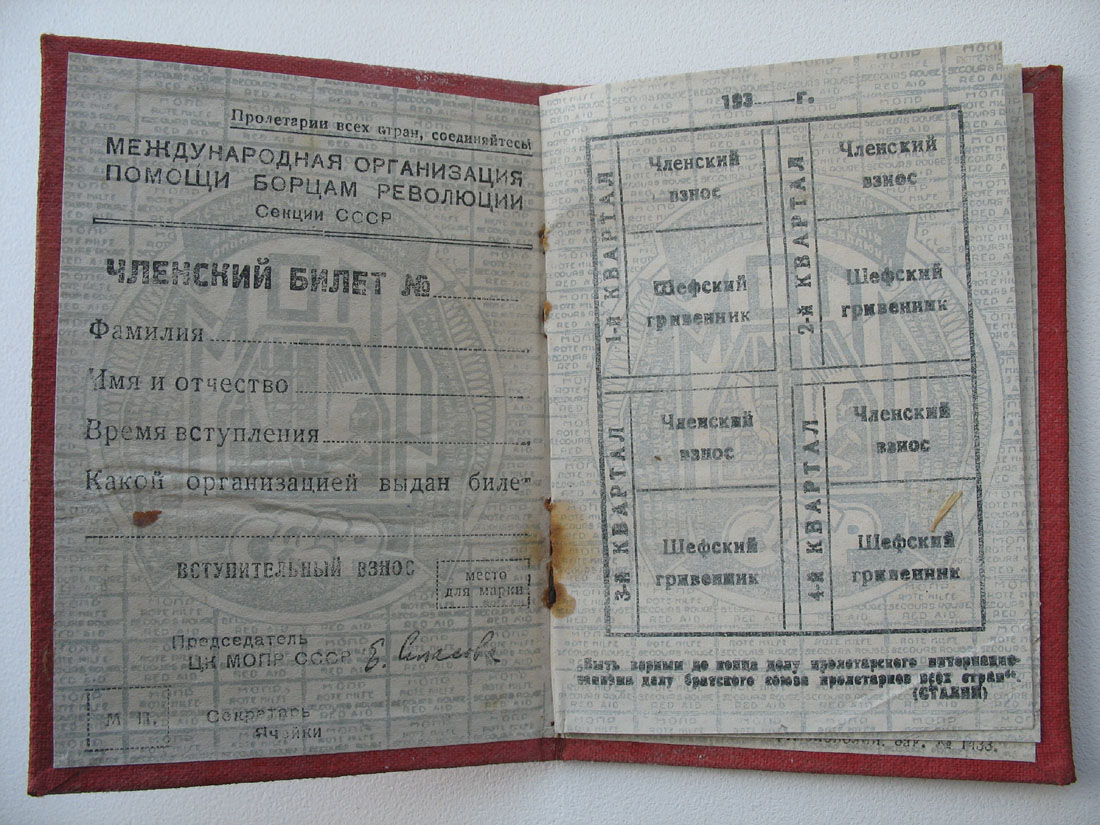 Пролетарии всех стран, соединяйтесь!
МЕЖДУНАРОДНАЯ ОРГАНИЗАЦИЯ
ПОМОЩИ БОРЦАМ РЕВОЛЮЦИИ
Секции СССР
ЧЛЕНСКИЙ БИЛЕТ №
Фамилия
Имя и отчество
Время вступления
Какой организацией выдан биле
ВСТУПИТЕЛЬНЫЙ ВЗНОС
место
для марки
Председатель
ЦК МОПР СССР Е. Стасова
М. П.
Секретарь
Ячейки
193 г.
1-й КВАРТАЛ
Членский
взнос
Шефский
гривенник
2-й КВАРТАЛ
Членский
взнос
Шефский
гривенник
3-й КВАРТАЛ
Членский
взнос
Шефский
гривенник
4-й КВАРТАЛ
Членский
взнос
Шефский
гривенник
„Быть верными до конца делу пролетарского интернацио-
нализма делу братского союза пролетариев всех стран“.
(СТАЛИН)
зак. № 1433.